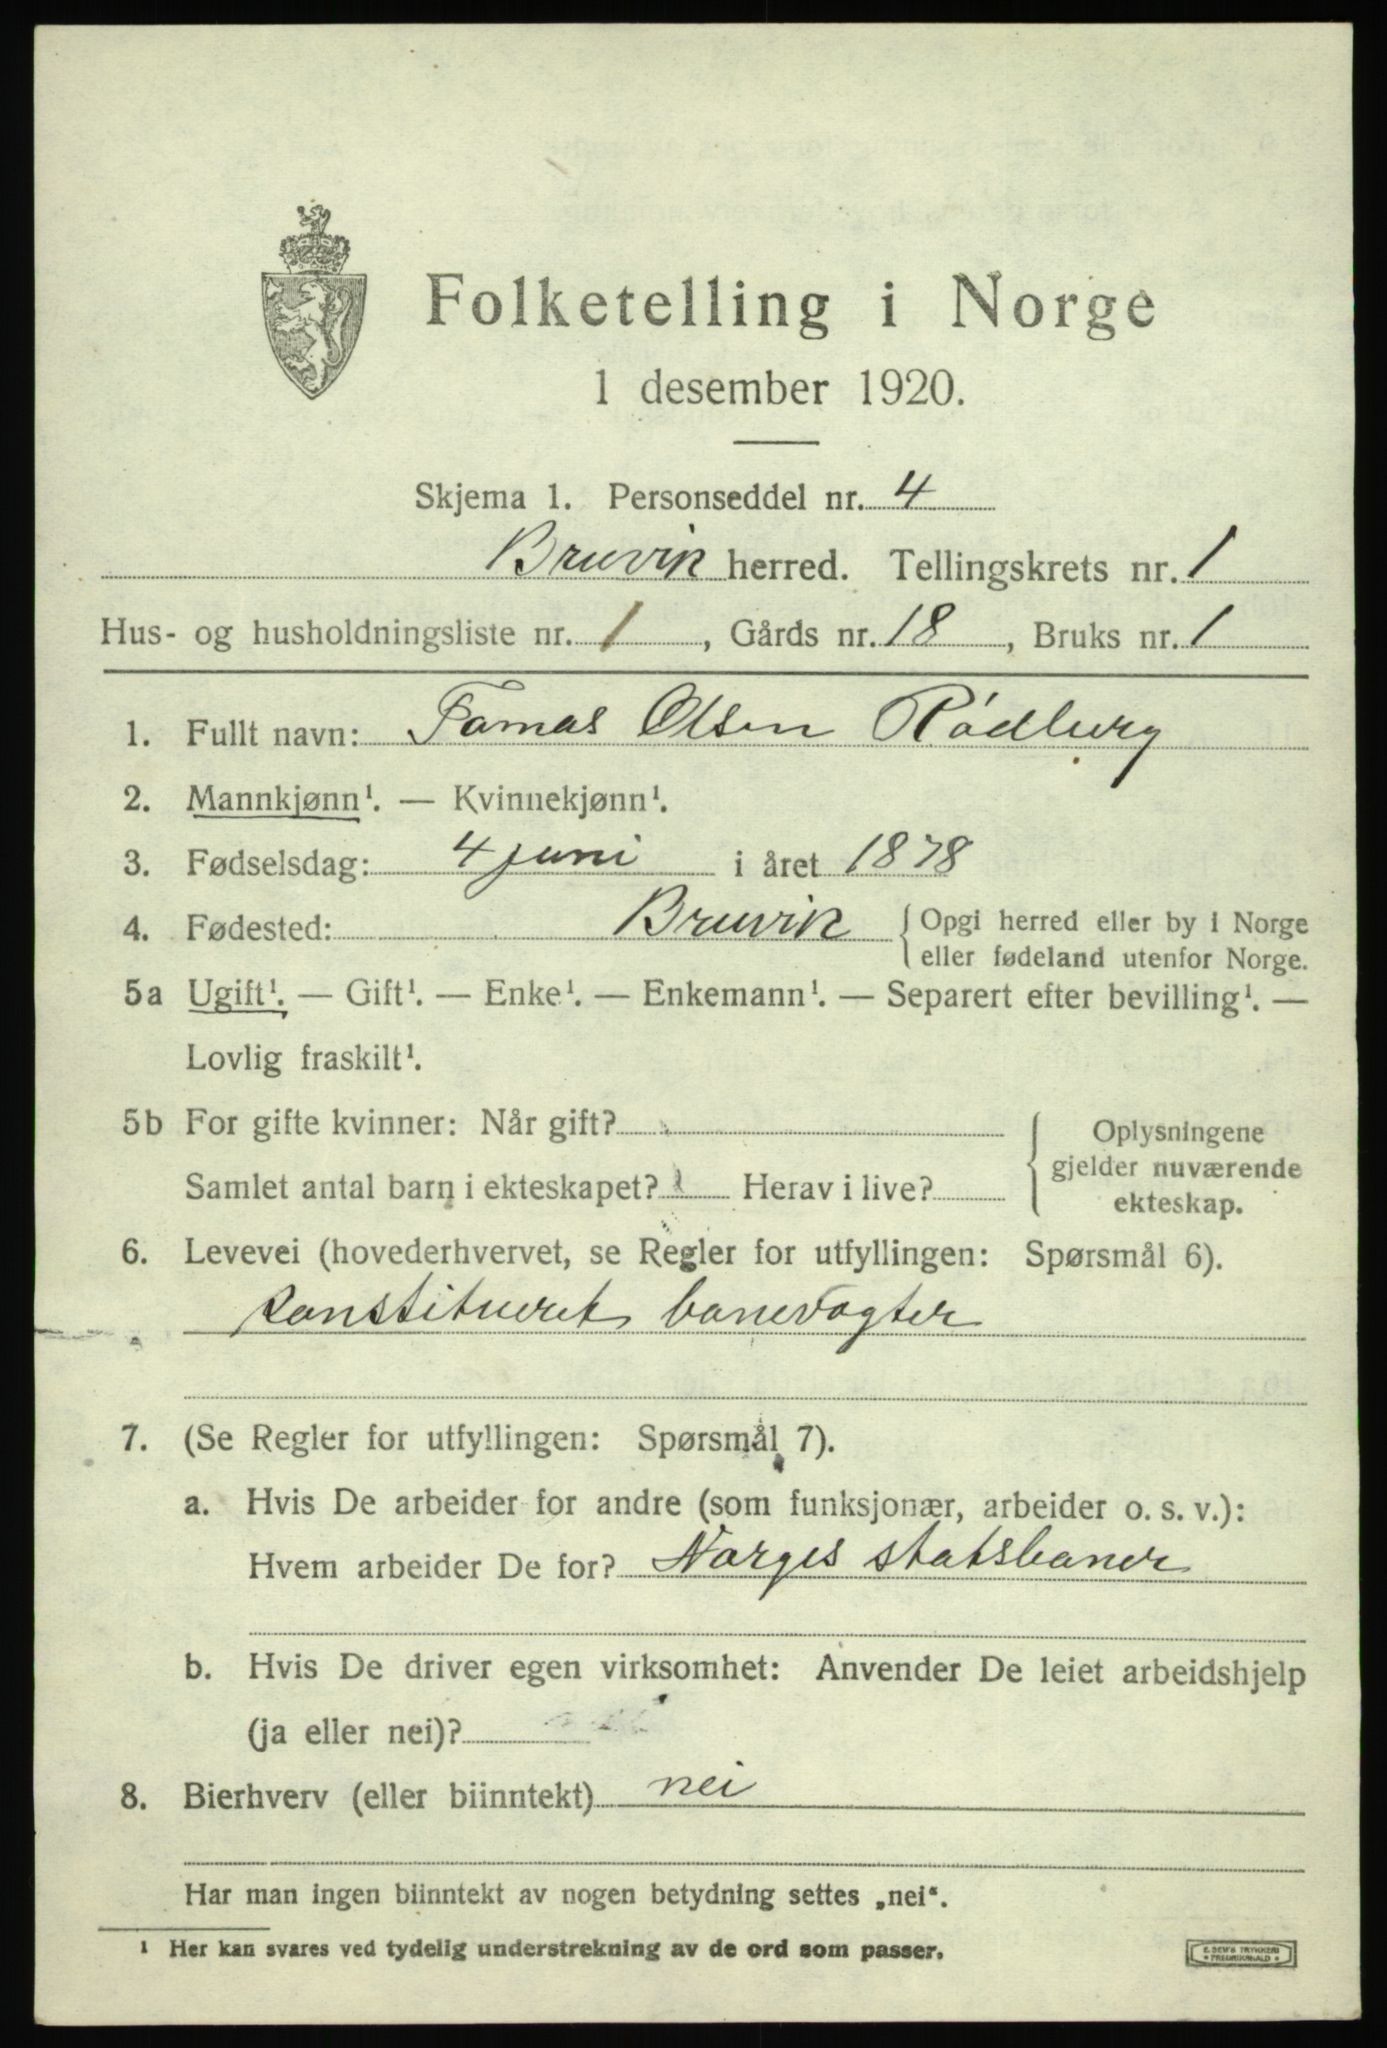 Folketelling i Norge
1 desember 1920.
Skjema 1. Personseddel nr. 4
Bruvik herred. Tellingskrets nr. 1
Hus- og husholdningsliste nr. 1, Gårds nr. 18, Bruks nr. 1
1. Fullt navn: Tomas Olsen Rødberg
2. Mannkjønn¹. — Kvinnekjønn¹.
3. Fødselsdag: 4 juni i året 1878
4. Fødested: Bruvik { Opgi herred eller by i Norge
eller fødeland utenfor Norge.
5a Ugift¹. — Gift¹. — Enke¹. — Enkemann¹. — Separert efter bevilling¹. —
Lovlig fraskilt¹.
5b For gifte kvinner: Når gift?
Samlet antal barn i ekteskapet? Herav i live?
Oplysningene
gjelder nuværende
ekteskap.
6. Levevei (hovederhvervet, se Regler for utfyllingen: Spørsmål 6).
konstitueret banevogter
7. (Se Regler for utfyllingen: Spørsmål 7).
a. Hvis De arbeider for andre (som funksjonær, arbeider o. s. v.):
Hvem arbeider De for? Norges statsbaner
b. Hvis De driver egen virksomhet: Anvender De leiet arbeidshjelp
(ja eller nei)?
8. Bierhverv (eller biinntekt) nei
Har man ingen biinntekt av nogen betydning settes „nei“.
¹ Her kan svares ved tydelig understrekning av de ord som passer.
E. SEM'S TRYKKERI
FREDRIKSHALD